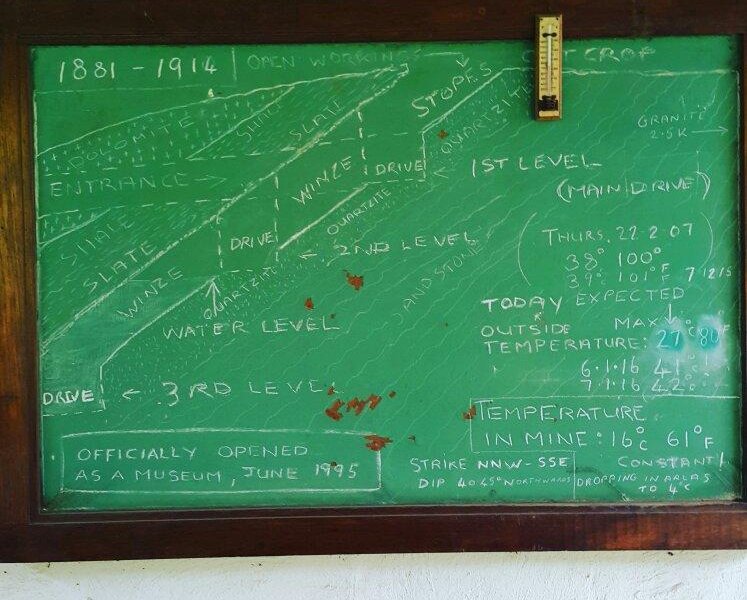 1881 - 1914
OPEN WORKING
OUTCROP
STOPES
SHALE
SLATE
DOLOMITE
QUARTZITE
GRANITE
2.5K →
ENTRANCE →
WINZE
DRIVE
← 1ST LEVEL
(MAIN DRIVE)
QUARTZITE
SHALE
SLATE
DRIVE
← 2ND LEVEL
WINZE
QUARTZITE
AND STONE
WATER LEVEL
(THURS. 22·2·07)
38° 100°
39° 101°F 7/12/15
TODAY EXPECTED
OUTSIDE MAX
TEMPERATURE: 27°C 80°F
6·1·16 41°C
7·1·16 42°C
DRIVE ← 3RD LEVEL
TEMPERATURE
IN MINE: 16°C 61°F
OFFICIALLY OPENED
AS A MUSEUM, JUNE 1995
STRIKE NNW-SSE
DIP 40·45° NORTHWARDS
CONSTANT
DROPPING IN AREAS
TO 4°C